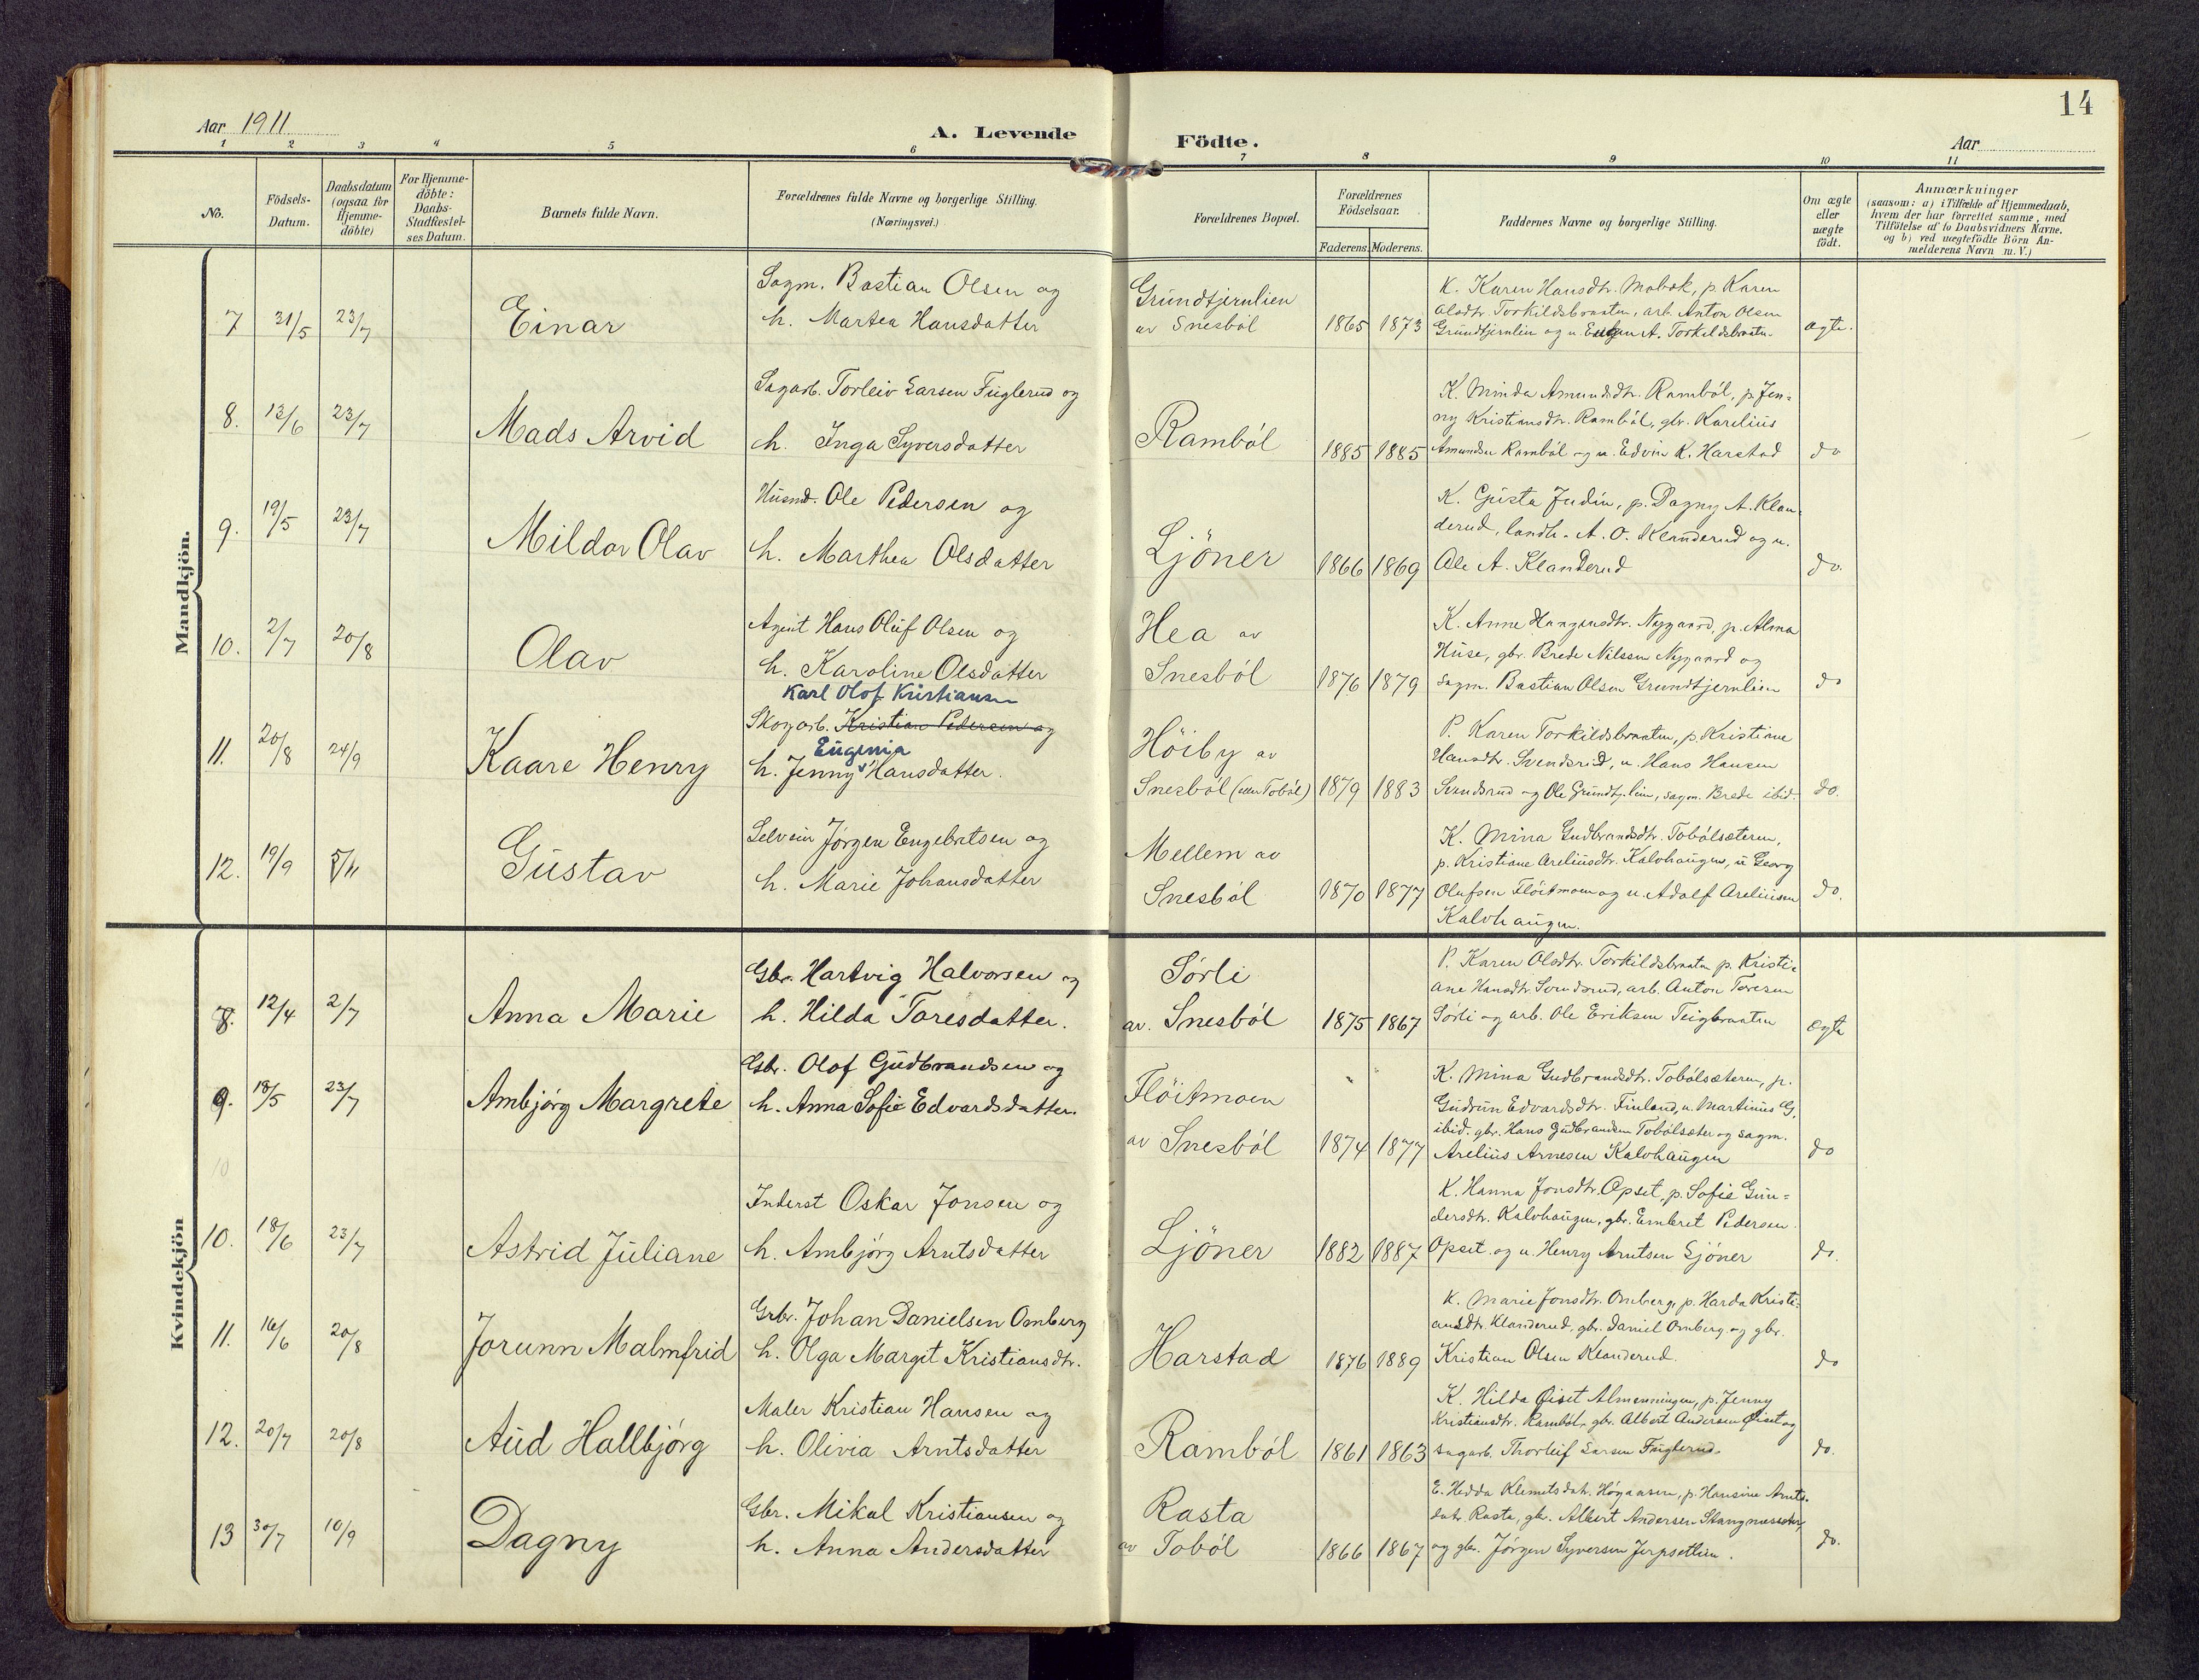 14
Aar 1911
A. Levende Födte.
Aar
1 2 3 4 5 6 7 8 9 10 11
No.
Födsels-Datum.
Daabsdatum (ogsaa for Hjemme-döbte)
For Hjemme-döbte: Daabs-Stadfæstel-ses Datum.
Barnets fulde Navn.
Forældrenes fulde Navne og borgerlige Stilling. (Næringsvei.)
Forældrenes Bopæl.
Forældrenes Födselsaar.
Faderens. Moderens.
Faddernes Navne og borgerlige Stilling.
Om ægte eller uægte födt.
Anmærkninger
(saasom: a) i Tilfælde af Hjemmedaab,
hvem der har forrettet samme, med
Tilföielse af to Daabsvidners Navne.
og b) ved uægtefödte Börn An-
melderens Navn m.V.)
Mandkjön.
7 31/5 23/7 Einar
Sagm. Bastian Olsen og
h. Martea Hansdatter
Grundtjernlien
av Snesböl
1865 1873
K. Karen Hansdtr. Mobæk, p. Karen
Olsdtr. Torkildsbraaten, arb. Anton Olsen
Grundtjernlien og u. A. Torkildsbraaten.
ægte.
8. 13/6 23/7 Mads Arvid
Sagarb. Torleiv Larsen Fuglerud og
h. Inga Syversdatter
Ramböl
1885 1885
K. Minda Amundsdtr. Ramböl, p. Jen=
ny Kristiansdtr. Ramböl, gbr. Karelius
Amundsen Ramböl og u. Edvin K. Harstad
do
9. 19/5 23/7 Mildor Olav
Husmd. Ole Pedersen og
h. Marthea Olsdatter
Ljöner
1866 1869
K. Gusta Judin, p. Dagny A. Klan-
derud, landh. A. O. Klanderud og u.
Ole A. Klanderud
do.
10. 2/7 20/8 Olav
Agent Hans Oluf Olsen og
h. Karoline Olsdatter
Hea av
Snesböl
1876 1879
K. Anne Hansdtr. Nygaard, p. Alma
Huse, gbr. Brede Nilssen Nygaard og
sagm. Bastian Olsen Grundtjernlien
do
11. 20/8 24/9 Kaare Henry
Karl Olof Kristiansen
Skogarb. Kristian Pedersen og
Eugenia
h. Jenny Hansdatter.
Höiby av
Snesböl (eller Toböl)
1879 1883
P. Karen Torkildsbraaten, p. Kristiane
Hansdtr. Svendsrud, u. Hans Hansen
Svendsrud og Ole Grundtj.lien, sagm. Brede ibid.
do.
12. 19/9 5/11 Gustav
Selveier Jörgen Engebretsen og
h. Marie Johansdatter
Mellem av
Snesböl
1870 1877
K. Mina Gudbrandsdtr. Tobölsæteren,
p. Kristiane Areliusdtr. Kalvhaugen, u Georg
Olufsen Flöitmoen og u. Adolf Areliussen
Kalvhaugen.
do.
Kvindekjön
8. 12/4 2/7 Anna Marie
Gbr. Hartvig Halvorsen og
h. Hilda Toresdatter.
Sörli
av. Snesböl
1875 1867
P. Karen Olsdtr. Torkildsbraaten p. Kristi-
ane Hansdtr Svendsrud, arb. Anton Toresen
Sörli og arb. Ole Eriksen Teigbraaten
ægte
9. 18/5 23/7 Ambjörg Margrete
Gbr. Olof Gudbrandsen og
h. Anna Sofie Edvardsdatter.
Flöitmoen
av Snesböl
1874 1877
K. Mina Gudbrandsdtr. Tobölsæteren, p.
Gudrun Edvardsdtr. Finland, u. Martinius G.
ibid. gbr. Hans Gudbrandsen Tobölsæter og sagm.
Arelius Arnesen Kalvhaugen
do
10
10. 18/6 23/7 Astrid Juliane
Inderst Oskar Jonsen og
h. Ambjörg Arntsdatter
Ljöner
1882 1887
K. Hanna Jonsdtr. Opset, p. Sofie Gun=
dersdtr. Kalvhaugen, gbr. Embret Pedersen
Opset og u. Henry Arntsen Ljöner
do.
11. 16/6 20/8 Jorunn Malmfrid
Grbr. Johan Danielsen Omberg
h. Olga Margit Kristiansdtr.
Harstad
1876 1889
K. Marie Jonsdtr. Omberg, p. Harda Kristi-
ansdtr. Klanderud, gbr. Daniel Omberg og gbr.
Kristian Olsen Klanderud.
do
12. 20/7 20/8 Aud Hallbjörg
Maler Kristian Hansen og
h. Olivia Arntsdatter
Ramböl
1861 1863
K. Hilda Öiset Almenningen, p. Jenny
Kristiansdtr. Ramböl, gbr. Albert Andersen Öiset og
sagarb. Thorleif Larsen Fuglerud.
do.
13 30/7 10/9 Dagny
Gbr. Mikal Kristiansen og
h. Anna Andersdatter
Rasta
av Toböl
1866 1867
E. Hedda Klemetsdatr. Högaasen, p. Hansine Arnts-
datr Rasta, gbr. Albert Andersen Stangnessæter,
og gbr. Jörgen Syversen Jerpsetlien.
do.